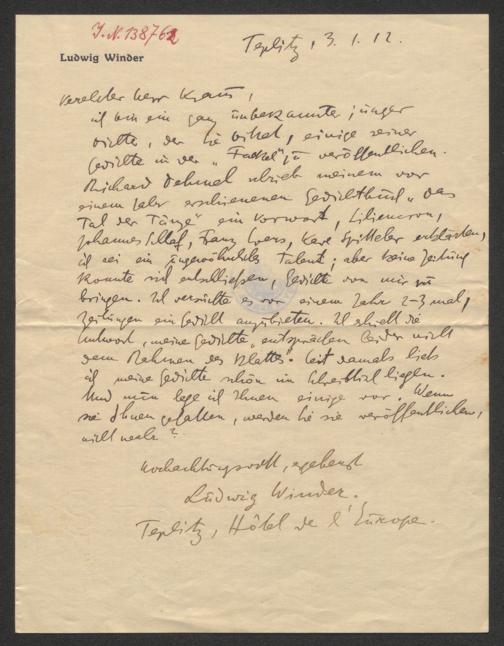 J.N. 138762
Ludwig Winder
Teplitz, 3. 1. 12.
Verehrter Herr Kraus,
ich bin ein ganz unbekannter, junger
Dichter, der Sie bittet, einige seiner
Gedichte in der „Fackel" zu veröffentlichen.
Richard Dehmel schrieb meinem vor
einem Jahr erschienenen Gedichtbuch „Das
Tal der Tänze" ein Vorwort, Liliencron,
Johannes Schlaf, Franz Evers, Karl Spitteler erklärten,
ich sei ein ungewöhnliches Talent; aber keine Zeitung
konnte sich entschließen, Gedichte von mir zu
bringen. Ich versuchte es vor einem Jahr 2-3 mal,
Zeitungen ein Gedicht anzubieten. Ich erhielt die
Antwort, „meine Gedichte" entsprächen leider nicht
dem Rahmen des Blattes". Seit damals ließ
ich meine Gedichte schön im Schreibtisch liegen.
Und nun lege ich Ihnen einige vor. Wenn
sie Ihnen gefallen, werden Sie sie veröffentlichen,
nicht wahr?
Hochachtungsvoll, ergebenst
Ludwig Winder.
Teplitz, Hôtel de l'Europe.